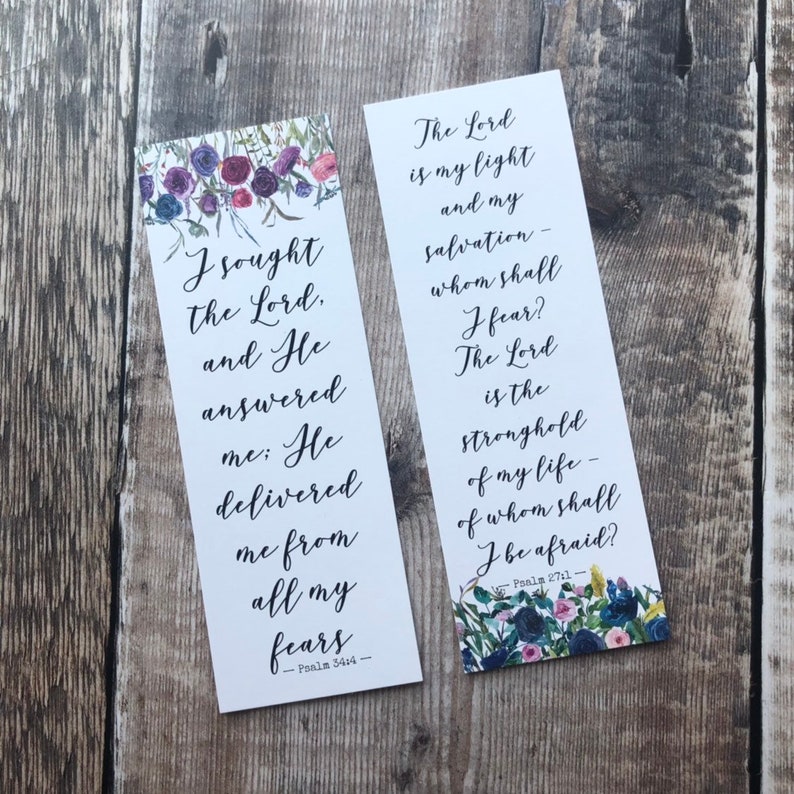 I sought
the Lord,
and He
answered
me; He
delivered
me from
all my
fears
— Psalm 34:4 —
The Lord
is my light
and my
salvation –
whom shall
I fear?
The Lord
is the
stronghold
of my life –
of whom shall
I be afraid?
— Psalm 27:1 —